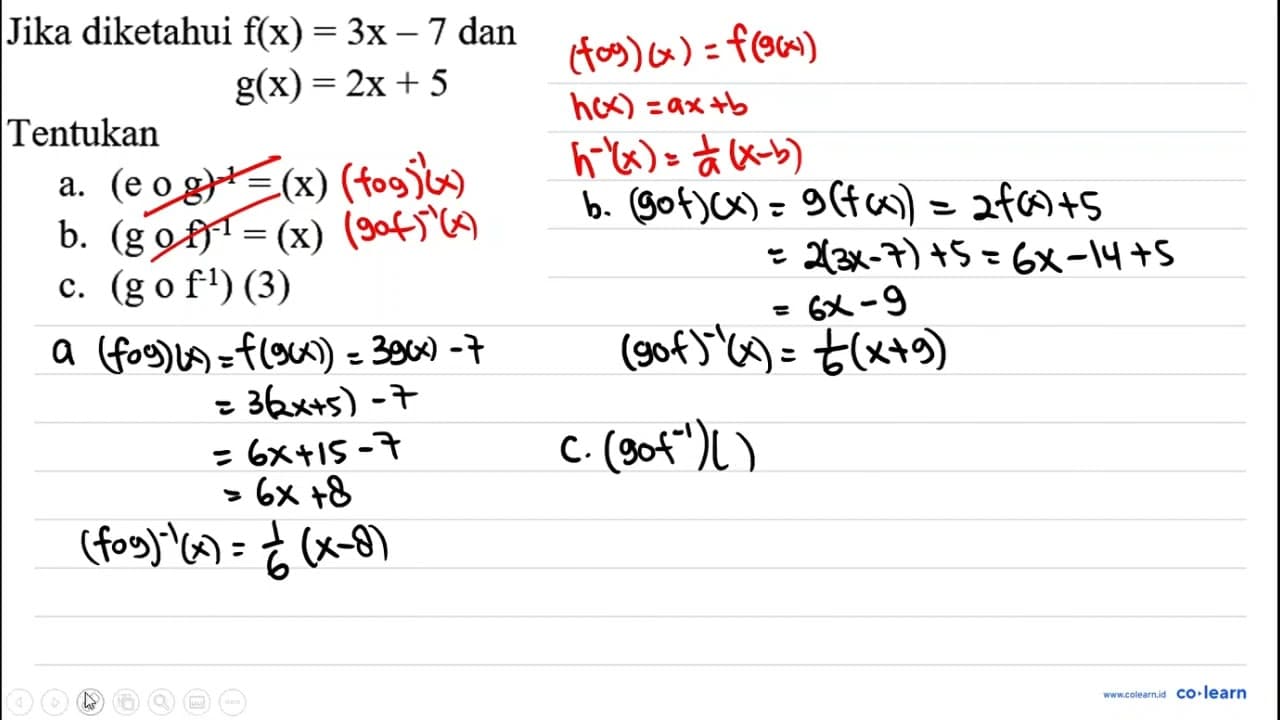 Jika diketahui f(x) = 3x – 7 dan
g(x) = 2x + 5
Tentukan
a. (e o g)⁻¹ = (x) (fog)⁻¹(x)
b. (g o f)⁻¹ = (x) (gof)⁻¹(x)
c. (g o f⁻¹) (3)
a (fog)(x) = f(g(x)) = 3g(x) - 7
= 3(2x+5) - 7
= 6x + 15 - 7
= 6x + 8
(fog)⁻¹(x) = 1/6 (x-8)
(fog)(x) = f(g(x))
h(x) = ax + b
h⁻¹(x) = 1/a (x-b)
b. (gof)(x) = g(f(x)) = 2f(x) + 5
= 2(3x-7) + 5 = 6x - 14 + 5
= 6x - 9
(gof)⁻¹(x) = 1/6 (x+9)
c. (gof⁻¹)( )
www.colearn.id co·learn